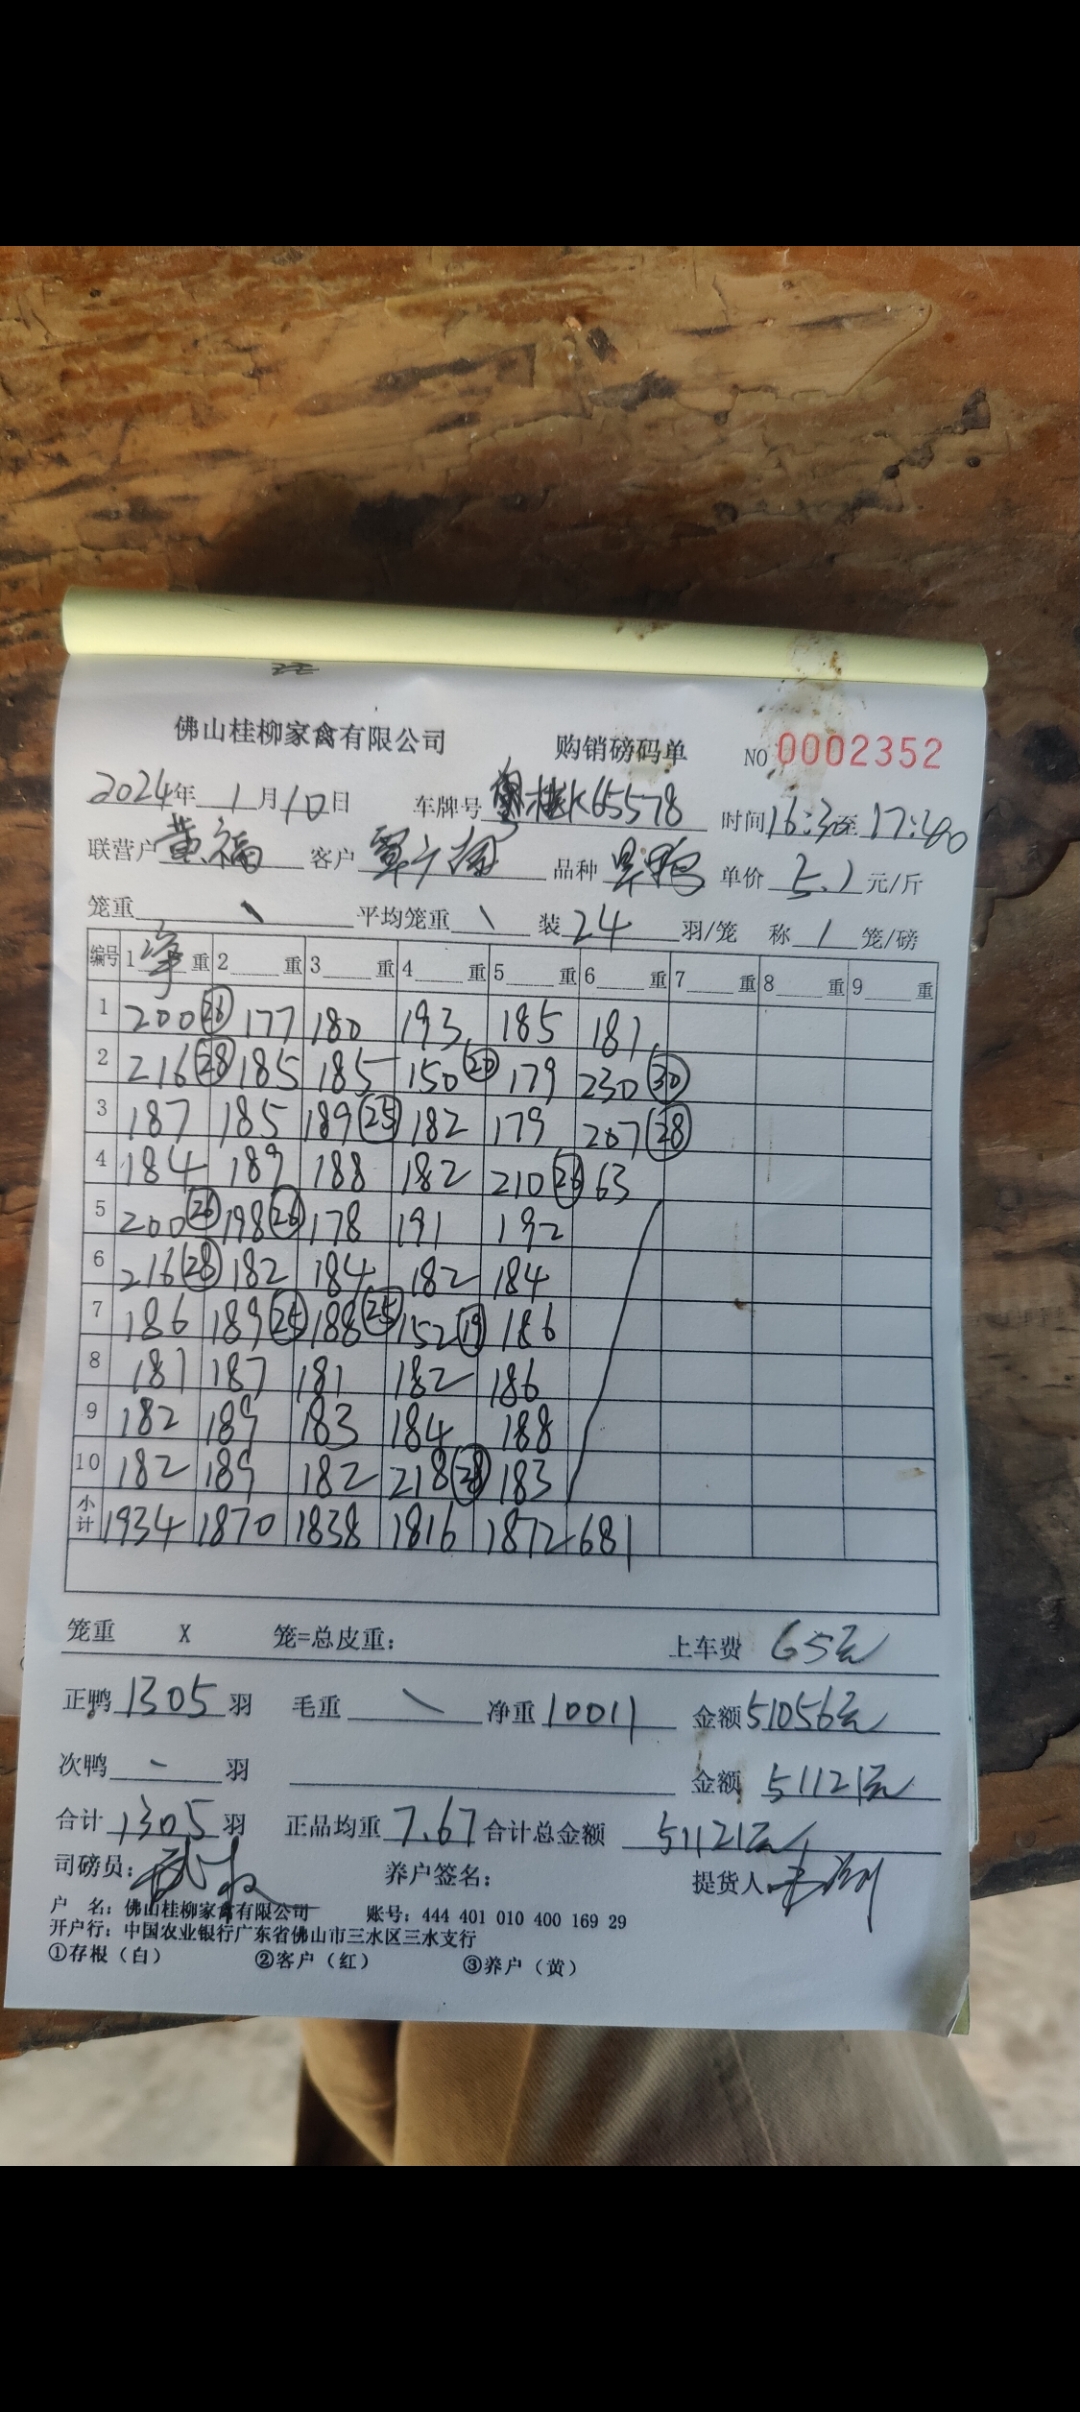 佛山桂柳家禽有限公司 购销磅码单 NO 0002352
2024年 1月10日 车牌号 桂K65578 时间16:3至17:40
联营户 黄福 客户 覃 品种 旱鸭 单价 5.1 元/斤
笼重 \ 平均笼重 \ 装 24 羽/笼 称 1 笼/磅
编号 1 净 重 2 重 3 重 4 重 5 重 6 重 7 重 8 重 9 重
1 200 (26) 177 180 193 185 181
2 216 (28) 185 185 150 (20) 179 230 (30)
3 187 185 189 (25) 182 179 207 (28)
4 184 189 188 182 210 (26) 63
5 200 (26) 198 (26) 178 191 192
6 216 (28) 182 184 182 184
7 186 189 (25) 188 (25) 152 (19) 186
8 181 187 181 182 186
9 182 189 183 184 188
10 182 189 182 218 (28) 183
小计 1934 1870 1838 1816 1872 681
笼重 X 笼=总皮重: 上车费 65元
正鸭 1305 羽 毛重 \ 净重 10011 金额 51056元
次鸭 - 羽 金额 51121元
合计 1305 羽 正品均重 7.67 合计总金额 51121元
司磅员: 养户签名: 提货人
户 名: 佛山桂柳家禽有限公司 账号: 444 401 010 400 169 29
开户行: 中国农业银行广东省佛山市三水区三水支行
①存根(白) ②客户(红) ③养户(黄)